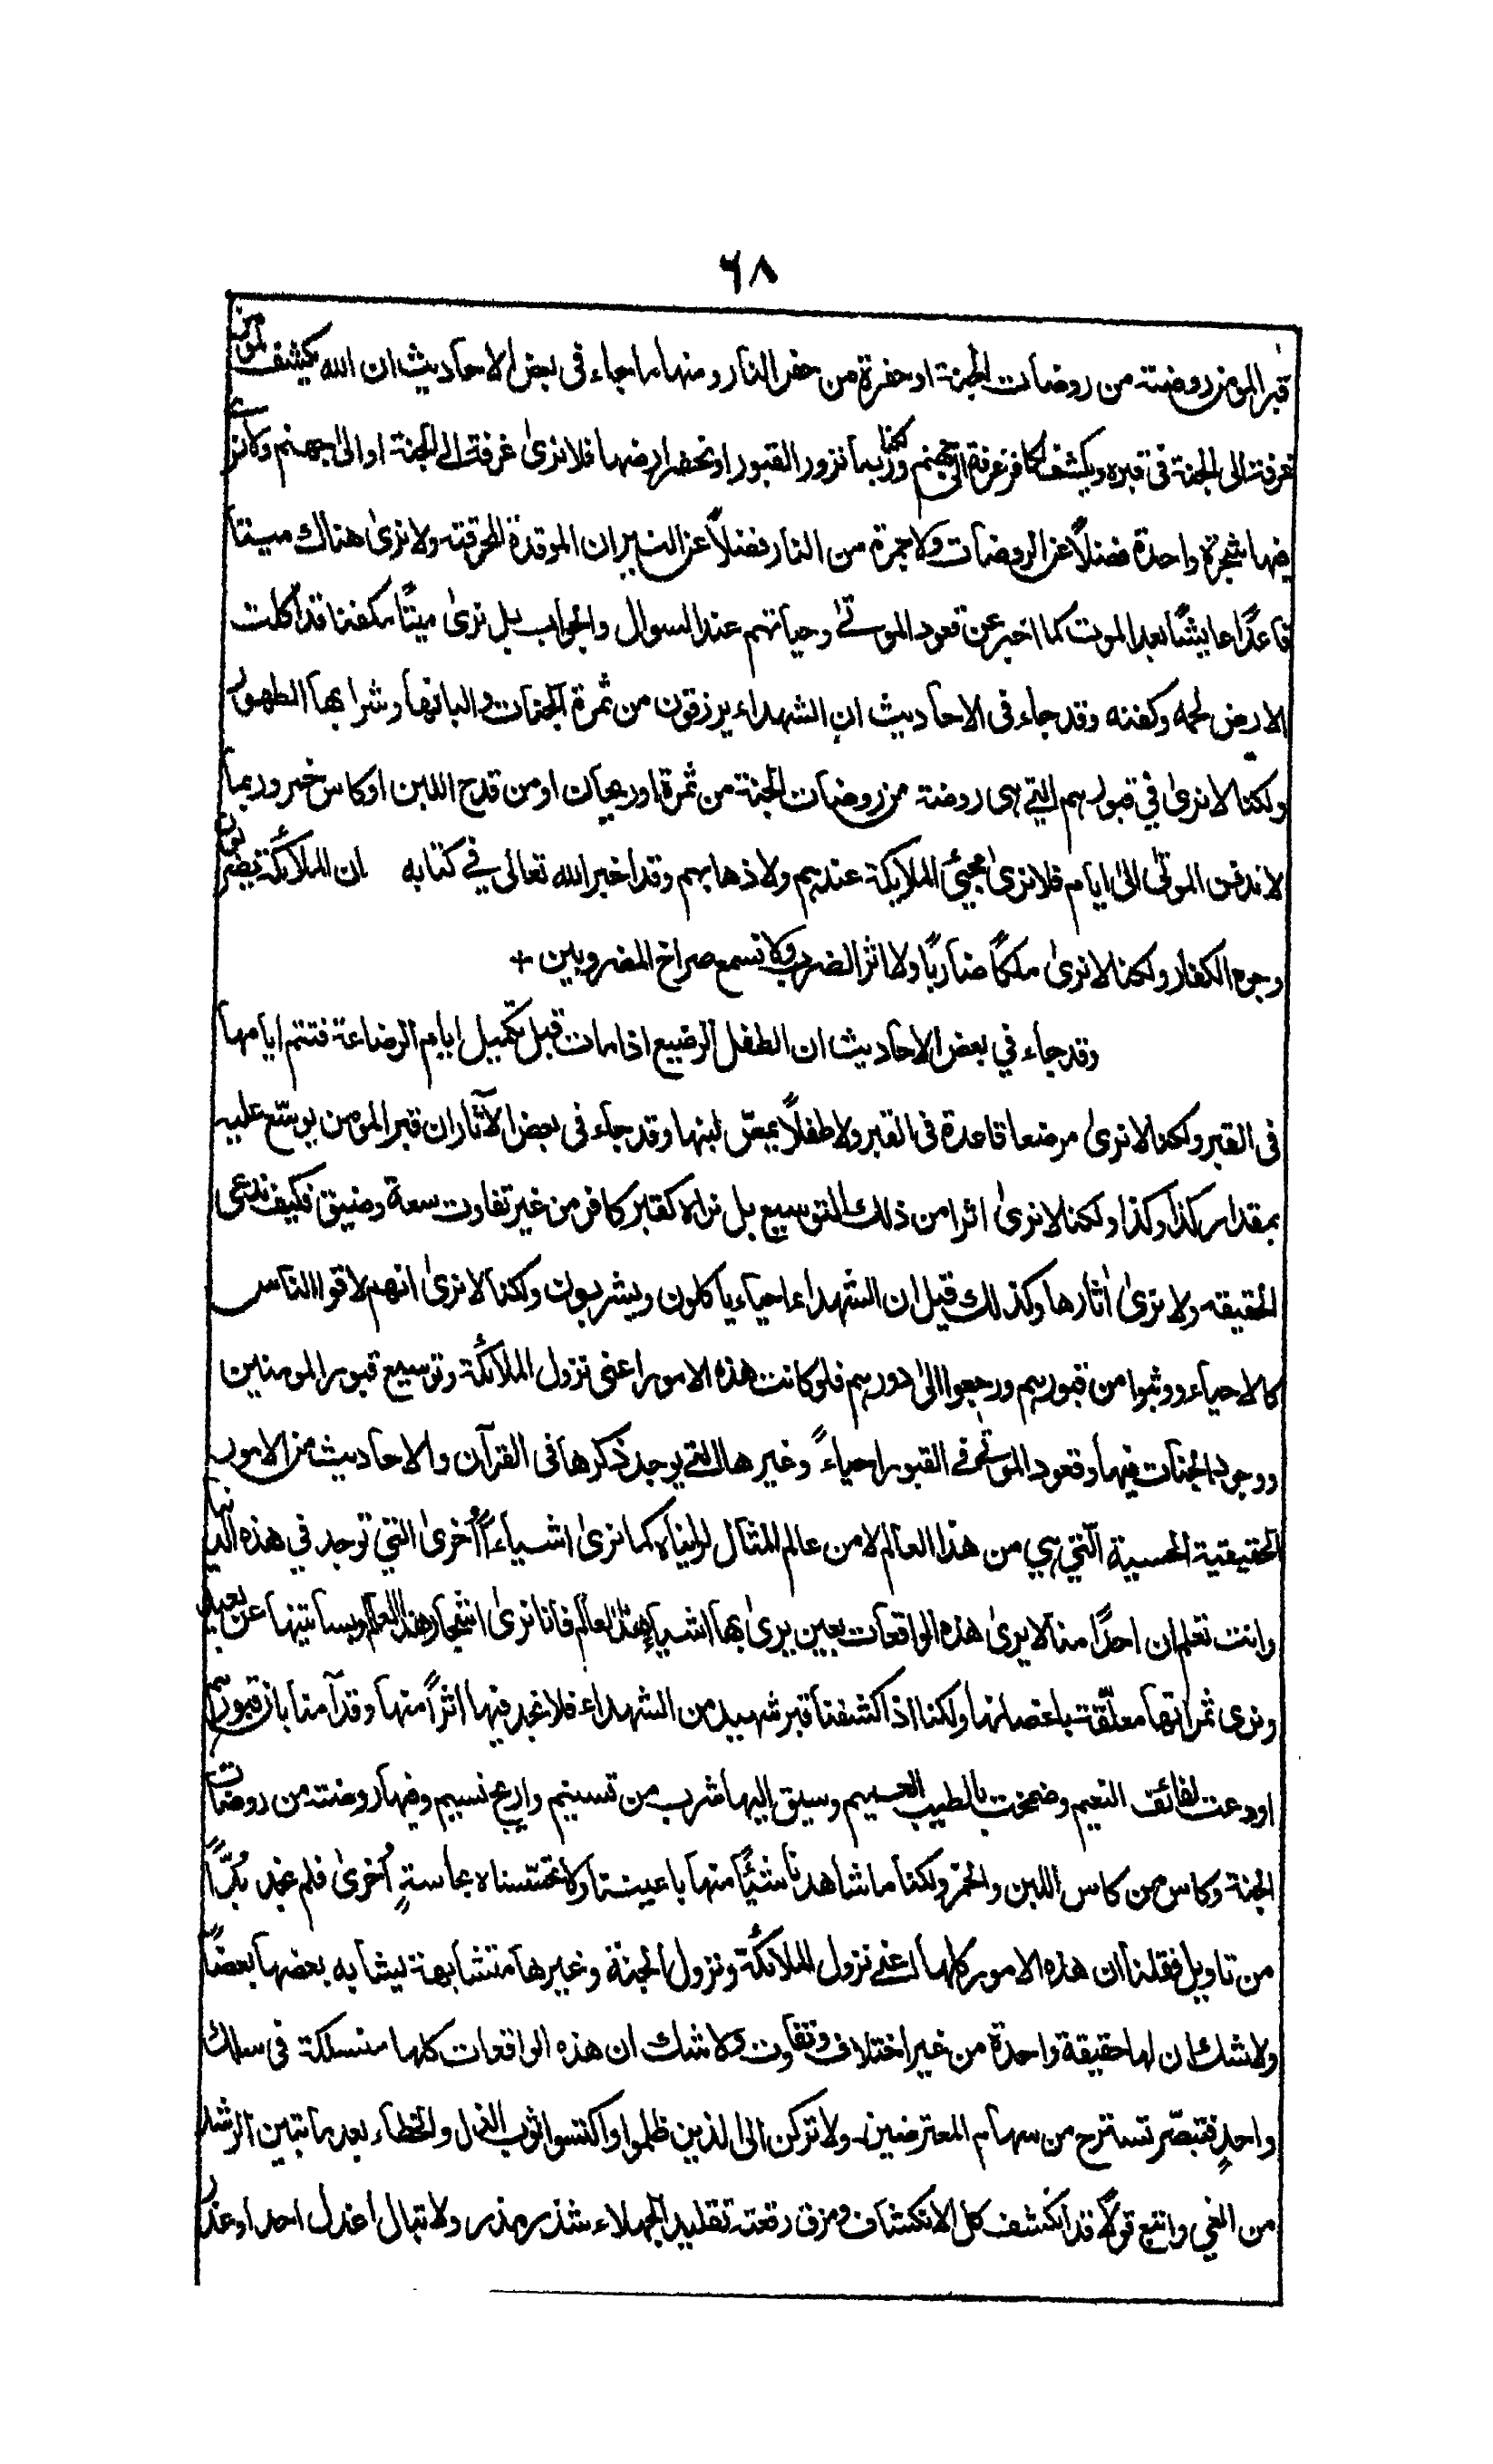 ٦٨
قبر المومن روضة من روضات الجنة او حفرة من حفر النار ومنها ما جاء فى بعض الاحاديث ان الله يكشف لمومن
غرفة الى الجنة فى قبره ويكشف لكافر غرفة الى جهنم ولكنا ربما نزور القبور او نحضر ارضها فلا نرىٰ غرفة الى الجنة او الىٰ جهنم ولا نرىٰ
فيها شجرة واحدة فضلاً عن الروضات ولا جمرة من النار فضلاً عن النيران الموقدة المحرقة ولا نرىٰ هناك ميتا
قاعدًا عايشًا بعد الموت كما اخبر عن قعود الموتےٰ وحياتهم عند السوال والجواب بل نرىٰ ميتًا مكفنا قد اكلت
الارض لحمه وكفنه وقد جاء فى الاحاديث ان الشهداء يرزقون من ثمرة الجنات والبانها وشرابها الطهور
ولكنا لا نرىٰ في قبورهم التے هى روضة من روضات الجنة من ثمرة او ريحان او من قدح اللبن او كاس خمر وربما
لا ندفن الموتىٰ الىٰ ايام فلا نرىٰ مجيئ الملايكة عندهم ولا ذهابهم وقد اخبر الله تعالى في كتابه ان الملائكة يضربون
وجوه الكفار ولكنا لا نرىٰ ملكًا ضاربًا ولا اثر الضرب ولا نسمع صراخ المضروبين +
وقد جاء في بعض الاحاديث ان الطفل الرضيع اذا مات قبل تكميل ايام الرضاعة فتتم ايامها
فى القبر ولكنا لا نرىٰ مرضعا قاعدة فى القبر ولا طفلاً يمصّ لبنها وقد جاء فى بعض الآثار ان قبر المومن يوسّع عليه
بمقدار كذا وكذا ولكنا لا نرىٰ اثرا من ذلك التوسيع بل نراه كقبر كافر من غير تفاوت سعة وضيق فكيف ندعى
الحقيقة ولا نرىٰ اٰثارها وكذلك قيل ان الشهداء احياء ياكلون ويشربون ولكنا لا نرىٰ انهم لاقوا الناس
كالاحياء ووثبوا من قبورهم ورجعوا الىٰ دورهم فلو كانت هذه الامور اعنى نزول الملائكة وتوسيع قبور المومنين
ووجود الجنات فيها وقعود الموتىٰ فے القبور احياءً وغيرها التے يوجد ذكرها فى القرآن والاحاديث من الامور
الحقيقية الحسية الّتي هي من هذا العالم لا من عالم المثال لرايناه كما نرىٰ اشياءً اُخرىٰ التي توجد في هذه الدنيا
وانت تعلم ان احدًا منا لا يرىٰ هذه الواقعات بعين يرىٰ بها اشياء هذا العالم فانا نرىٰ اشجار هذا العالم وبساتينها عن بعيد
ونرى ثمراتها معلّقة باغصانها ولكنا اذا كشفنا قبر شهيد من الشهداء فلا نجد فيها اثراً منها وقد آمنا بان قبورهم
اودعت لفائف النعيم وضمخت بالطيب العميم وسيق اليها شرب من تسنيم واريج نسيم وفيها روضة من روضات
الجنة وكاس من كاس اللبن والخمر ولكنا ما شاهدنا شيئًا منها باعيننا ولا تحسّسناه بحاسةٍ اُخرىٰ فلم نجد بُدّاً
من تاويل فقلنا ان هذه الامور كلها اعنے نزول الملائكة ونزول الجنة وغيرها متشابهة يشابه بعضها بعضًا
ولا شك ان لها حقيقة واحدة من غير اختلاف وتفاوت ولا شك ان هذه الواقعات كلها منسلكة فى سلك
واحدٍ فتبصّر تسترح من سهام المعترضين ولا تركن الى الذين ظلموا واكتسوا ثوب الذل والخطاء بعد ما تبين الرشد
من الغي واتبع قولاً قد انكشف كل الانكشاف ومزق رقعة تقليد الجهلاء شذر مذر ولا تبال اعذل احد او عذر